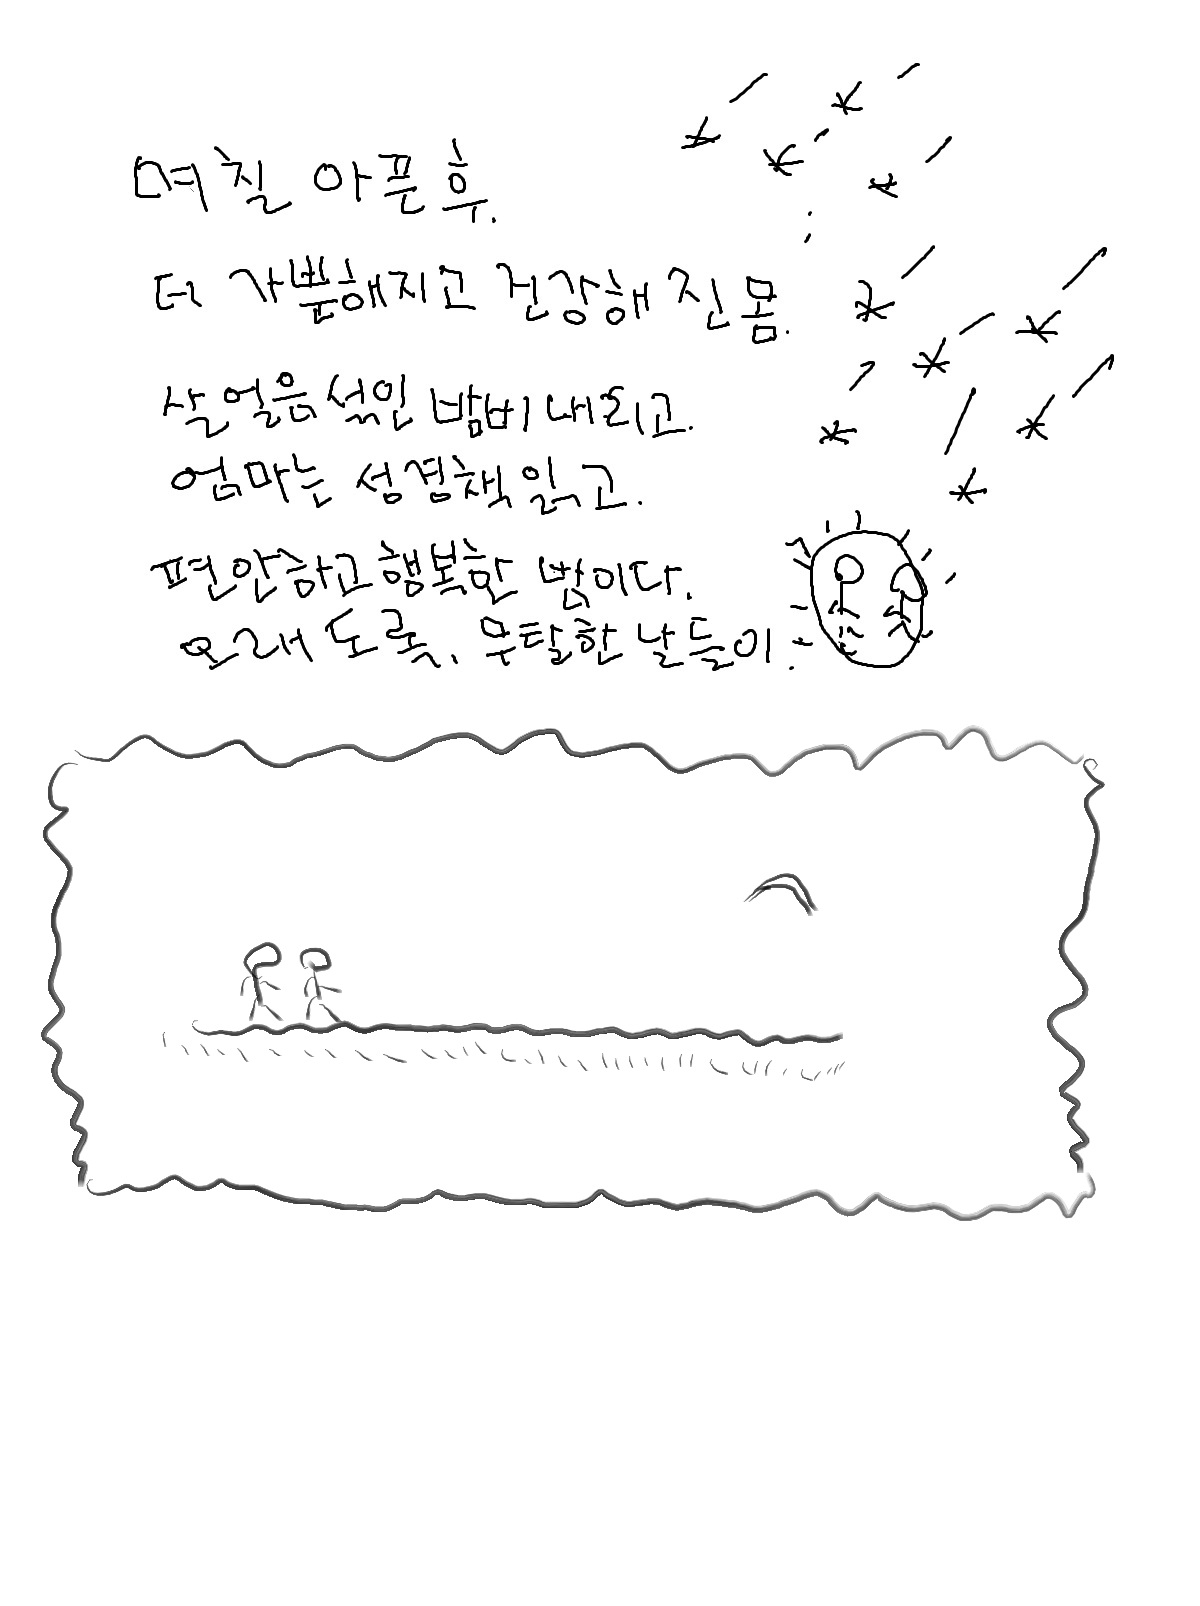 며칠 아픈 후.
더 가뿐해지고 건강해진 몸.
살얼음 섞인 밤비 내리고.
엄마는 성경책 읽고.
편안하고 행복한 밤이다.
오래도록, 무탈한 날들이.